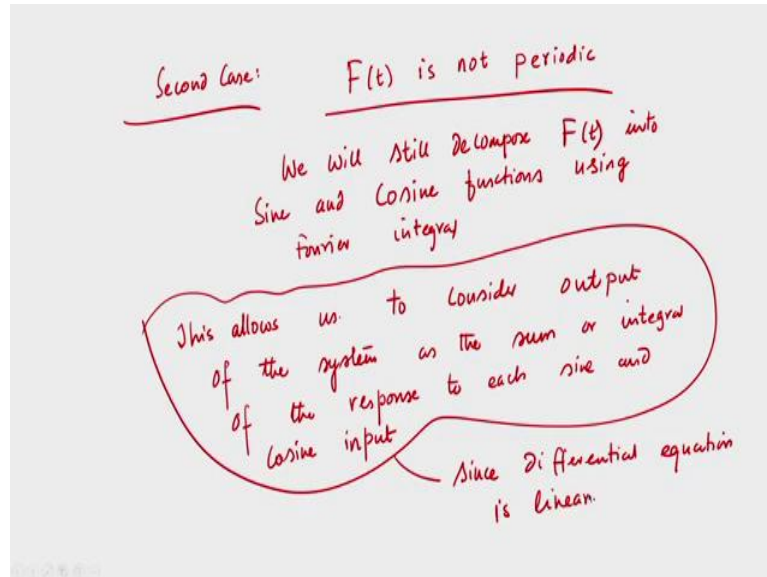 Second Case: F(t) is not periodic
We will still decompose F(t) into
Sine and Cosine functions using
Fourier integral
This allows us to consider output
of the system as the sum or integral
of the response to each sine and
Cosine input
Since differential equation
is linear.